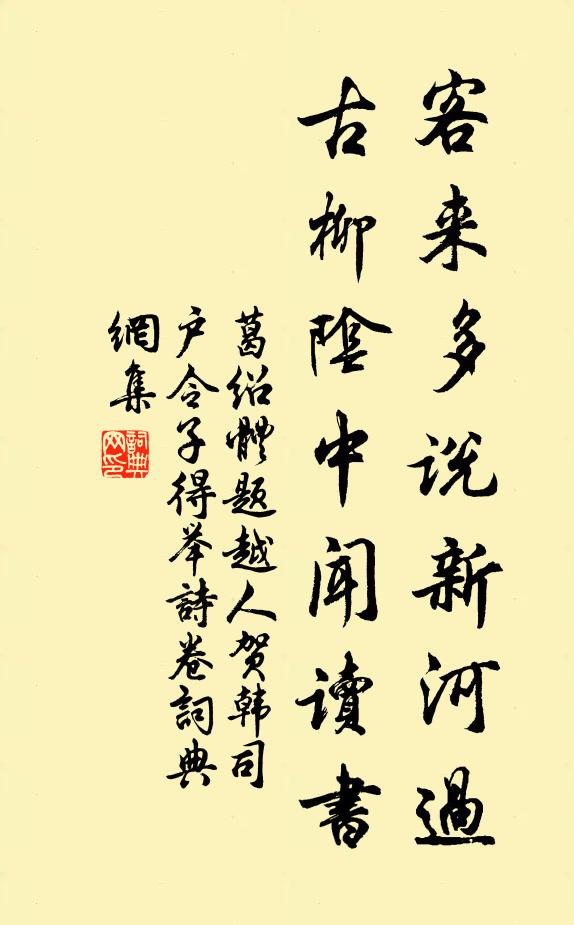 客来多说新河過
古柳陰中闻讀書
葛绍體题越人贺韩司
户令子得举詩卷詞典
網集
詞典网印